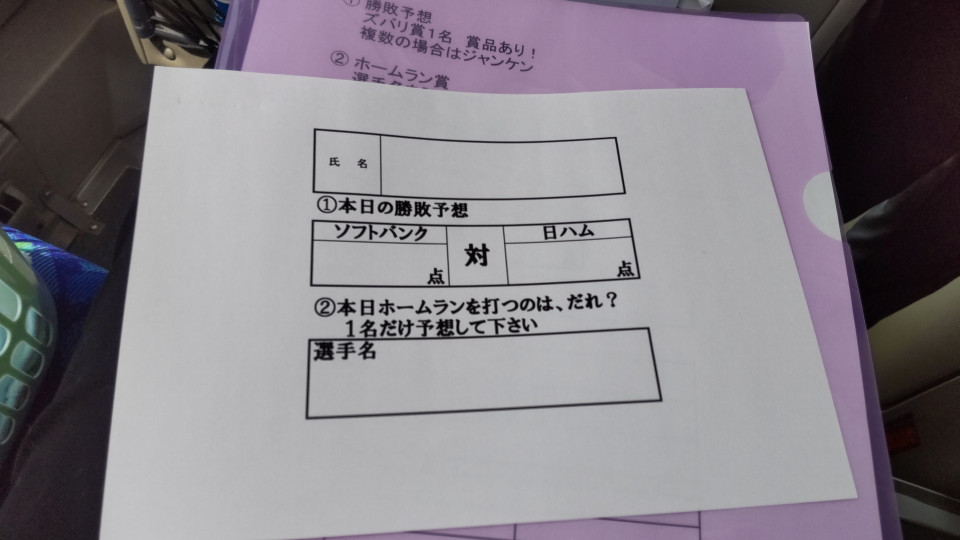 ① 勝敗予想
ズバリ賞1名 賞品あり！
複数の場合はジャンケン
② ホームラン賞
氏 名
①本日の勝敗予想
ソフトバンク 対 日ハム
点 点
②本日ホームランを打つのは、だれ？
1名だけ予想して下さい
選手名